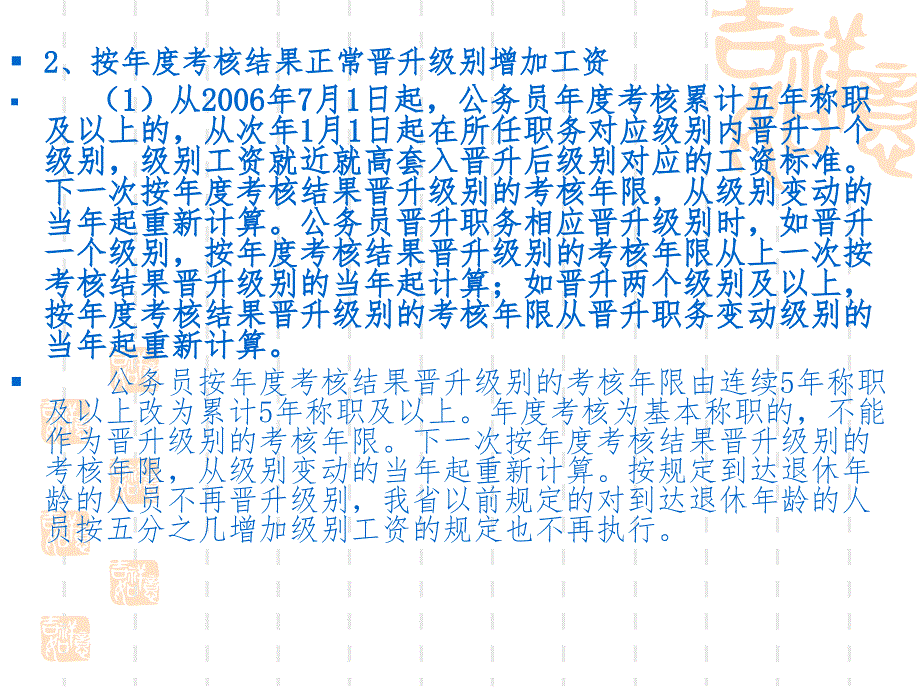 2、按年度考核结果正常晋升级别增加工资
（1）从2006年7月1日起，公务员年度考核累计五年称职
及以上的，从次年1月1日起在所任职务对应级别内晋升一个
级别，级别工资就近就高套入晋升后级别对应的工资标准。
下一次按年度考核结果晋升级别的考核年限，从级别变动的
当年起重新计算。公务员晋升职务相应晋升级别时，如晋升
一个级别，按年度考核结果晋升级别的考核年限从上一次按
考核结果晋升级别的当年起计算；如晋升两个级别及以上，
按年度考核结果晋升级别的考核年限从晋升职务变动级别的
当年起重新计算。
公务员按年度考核结果晋升级别的考核年限由连续5年称职
及以上改为累计5年称职及以上。年度考核为基本称职的，不能
作为晋升级别的考核年限。下一次按年度考核结果晋升级别的
考核年限，从级别变动的当年起重新计算。按规定到达退休年
龄的人员不再晋升级别，我省以前规定的对到达退休年龄的人
员按五分之几增加级别工资的规定也不再执行。
吉祥如意
吉祥如意
吉祥如意